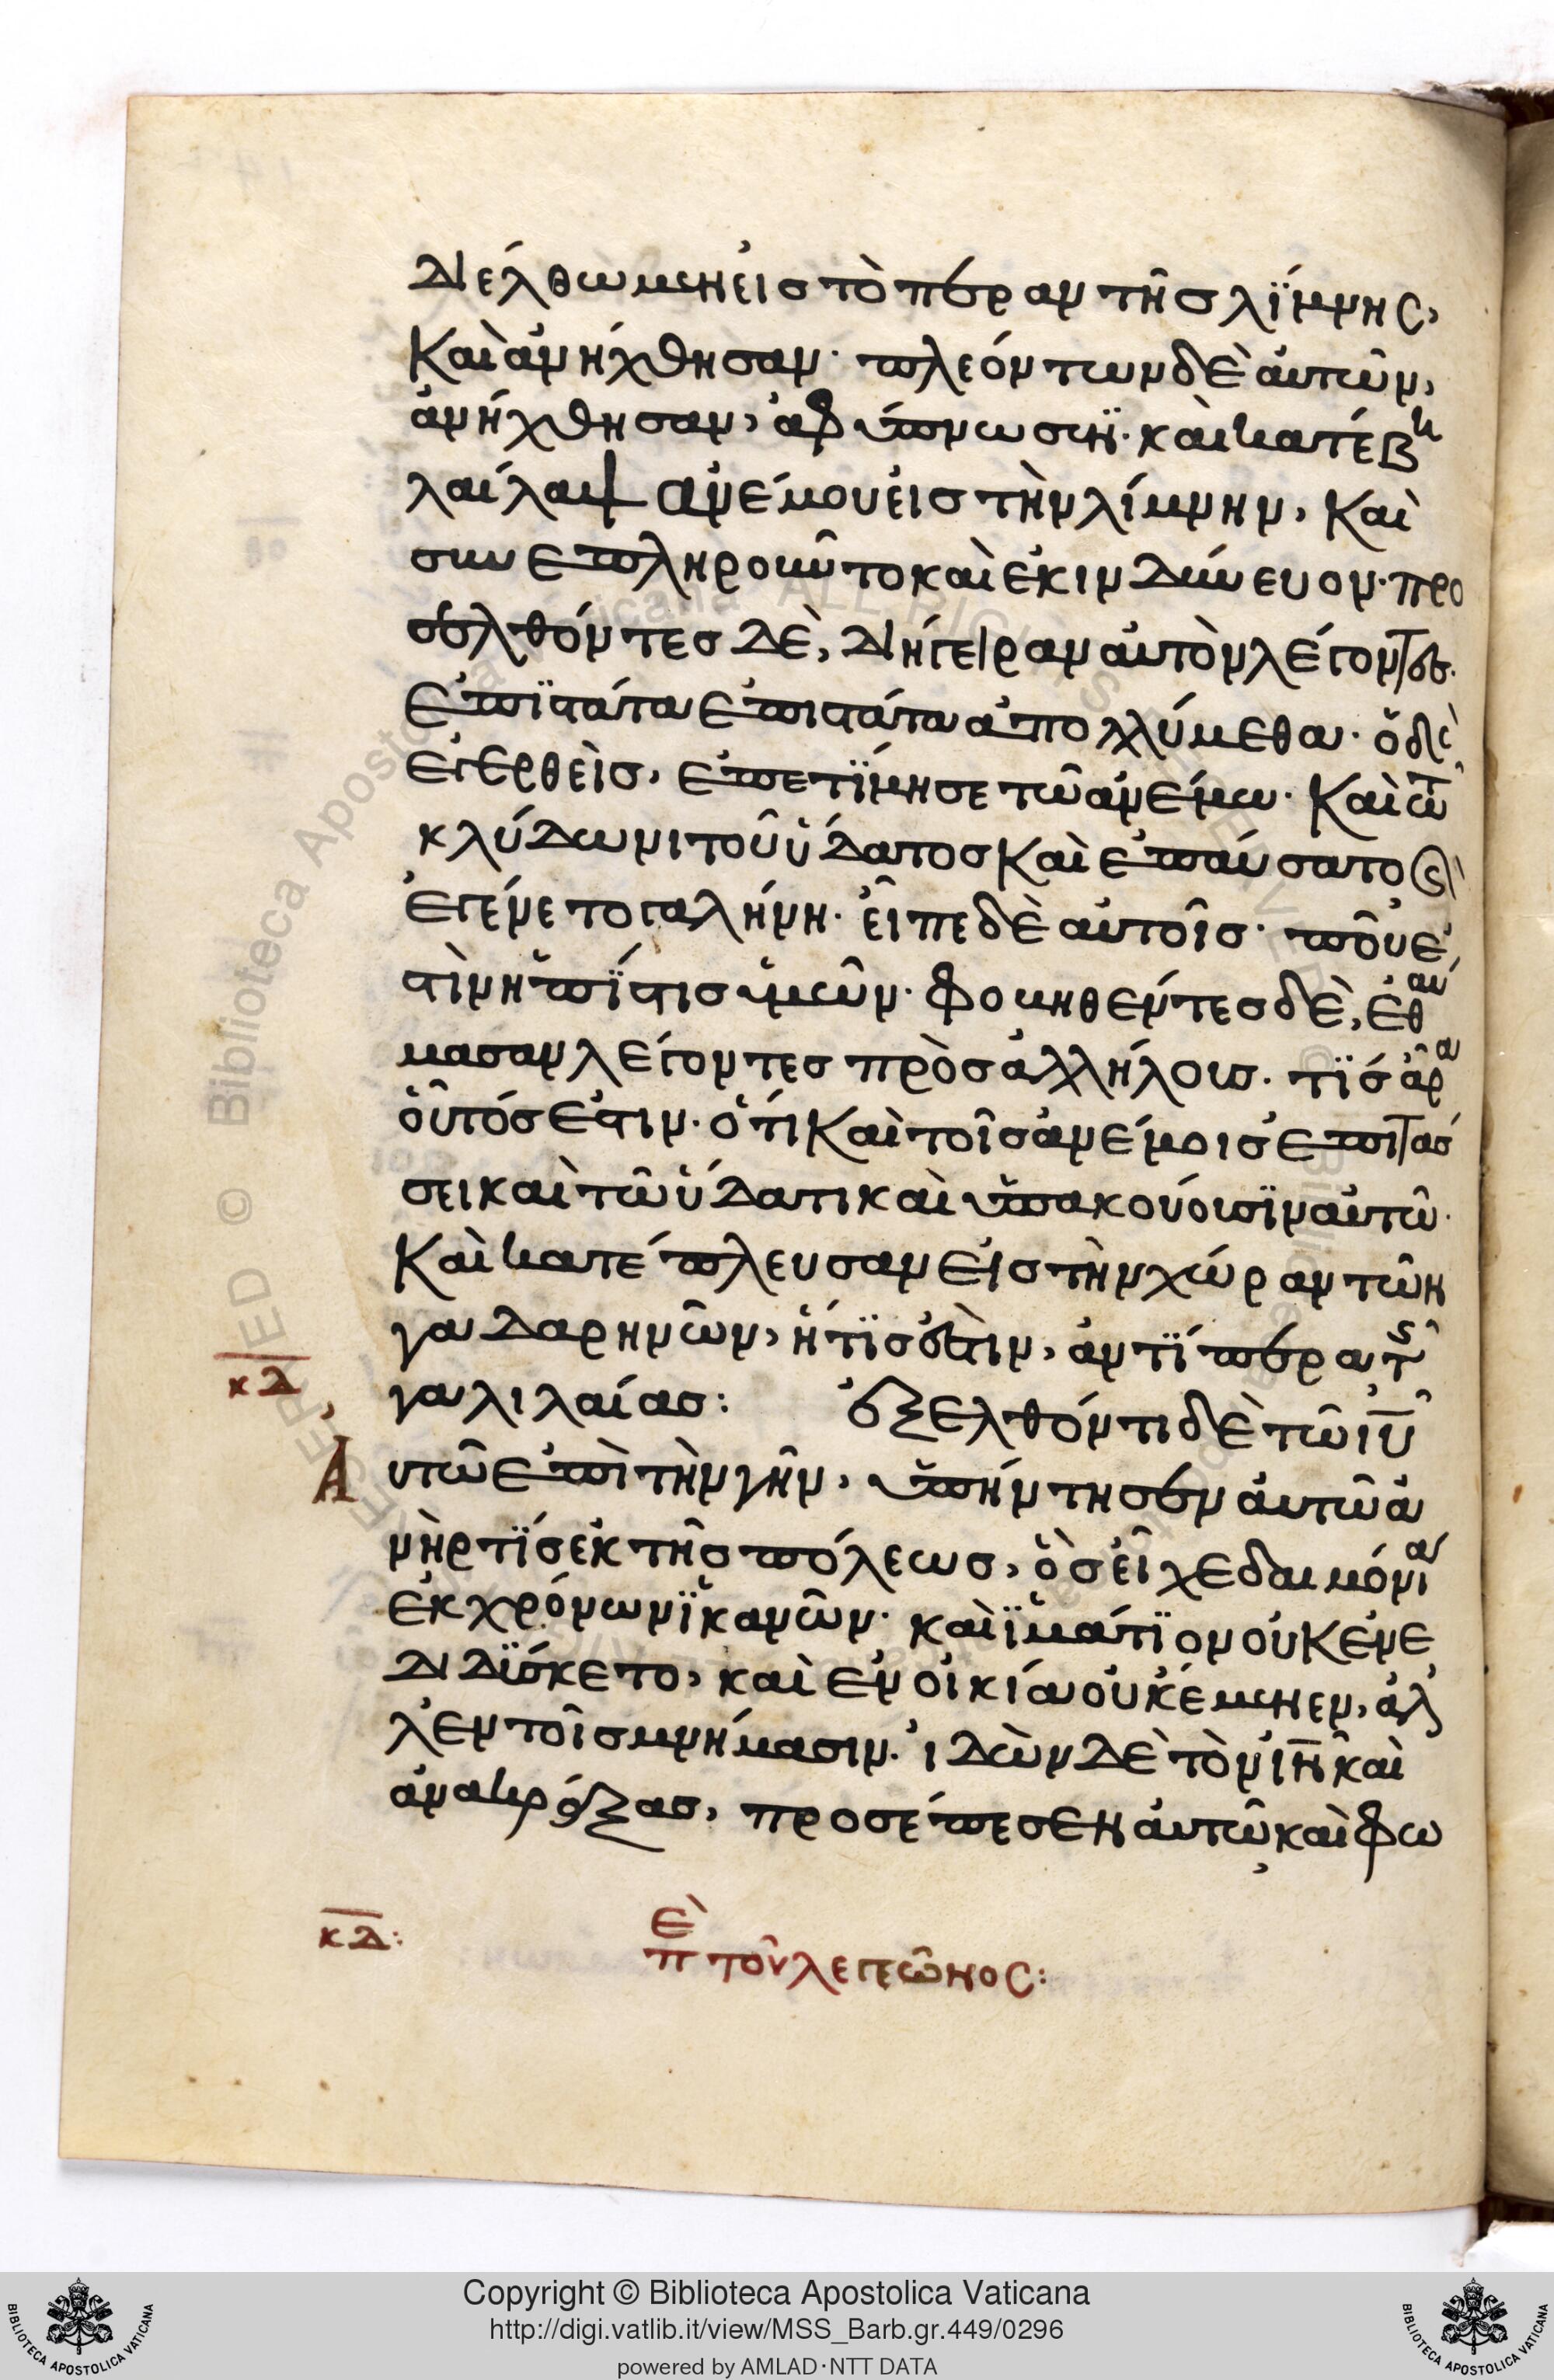 διέλθωμεν εἰς τὸ πέραν τῆς λίμνης,
Καὶ ἀνήχθησαν· πλεόντων δὲ αὐτῶν,
ἀνήχθησαν, ἀφύπνωσεν· καὶ κατέβη
λαίλαψ ἀνέμου εἰς τὴν λίμνην, Καὶ
συνεπληροῦντο καὶ ἐκινδύνευον· προ
σελθόντες δὲ, διήγειραν αὐτὸν λέγοντες·
ἐπϊστάτα ἐπιστάτα ἀπολλύμεθα· ὁ δὲ
ἐγερθεὶς, ἐπετΐμησε τῶ ἀνέμω· Καὶ τῶ
κλύδωνι τοῦ ὕδατος Καὶ ἐπαύσατο καὶ
ἐγένετο γαλήνη· εἶπε δὲ αὐτοῖς· ποῦ ἐ
στὶν ἡ πΐστις ὑμῶν· φοβηθέντες δὲ, ἐθαύ
μασαν λέγοντες πρὸς ἀλλήλους· τΐς ἄρα
οὗτός ἐστιν· ὅτι Καὶ τοῖς ἀνέμοις ἐπιτάσ
σει καὶ τῶ ὕδατι καὶ ὑπακούουσϊν αὐτῶ·
Καὶ κατέπλευσαν εἰς τὴν χώραν τῶν
γαδαρηνῶν, ἥτϊς ἐστὶν, ἀντΐπερα τῆς
γαλιλαίας: ἐξελθόντι δὲ τῶ ιυ
Αυτῶ ἐπὶ τὴν γῆν, ὑπήντησεν αὐτῶ ἀ
νὴρ τΐς ἐκ τῆς πόλεως, ὃς εἶχε δαιμόνια
ἐκ χρόνων ϊκανῶν· καὶ ϊμάτϊον οὐκ ἐνε
διδΰσκετο, καὶ ἐν οἰκία οὐκ ἔμενεν, ἀλ
λ' ἐν τοῖς μνήμασιν· ἰδὼν δὲ τὸν ιν καὶ
ἀνακράξας, προσέπεσεν αὐτῶ καὶ φω
κδ
κδ: ἐπ τοῦ λεγεῶνος:
Copyright © Biblioteca Apostolica Vaticana
http://digi.vatlib.it/view/MSS_Barb.gr.449/0296
powered by AMLAD·NTT DATA
BIBLIOTECA APOSTOLICA VATICANA
BIBLIOTECA APOSTOLICA VATICANA